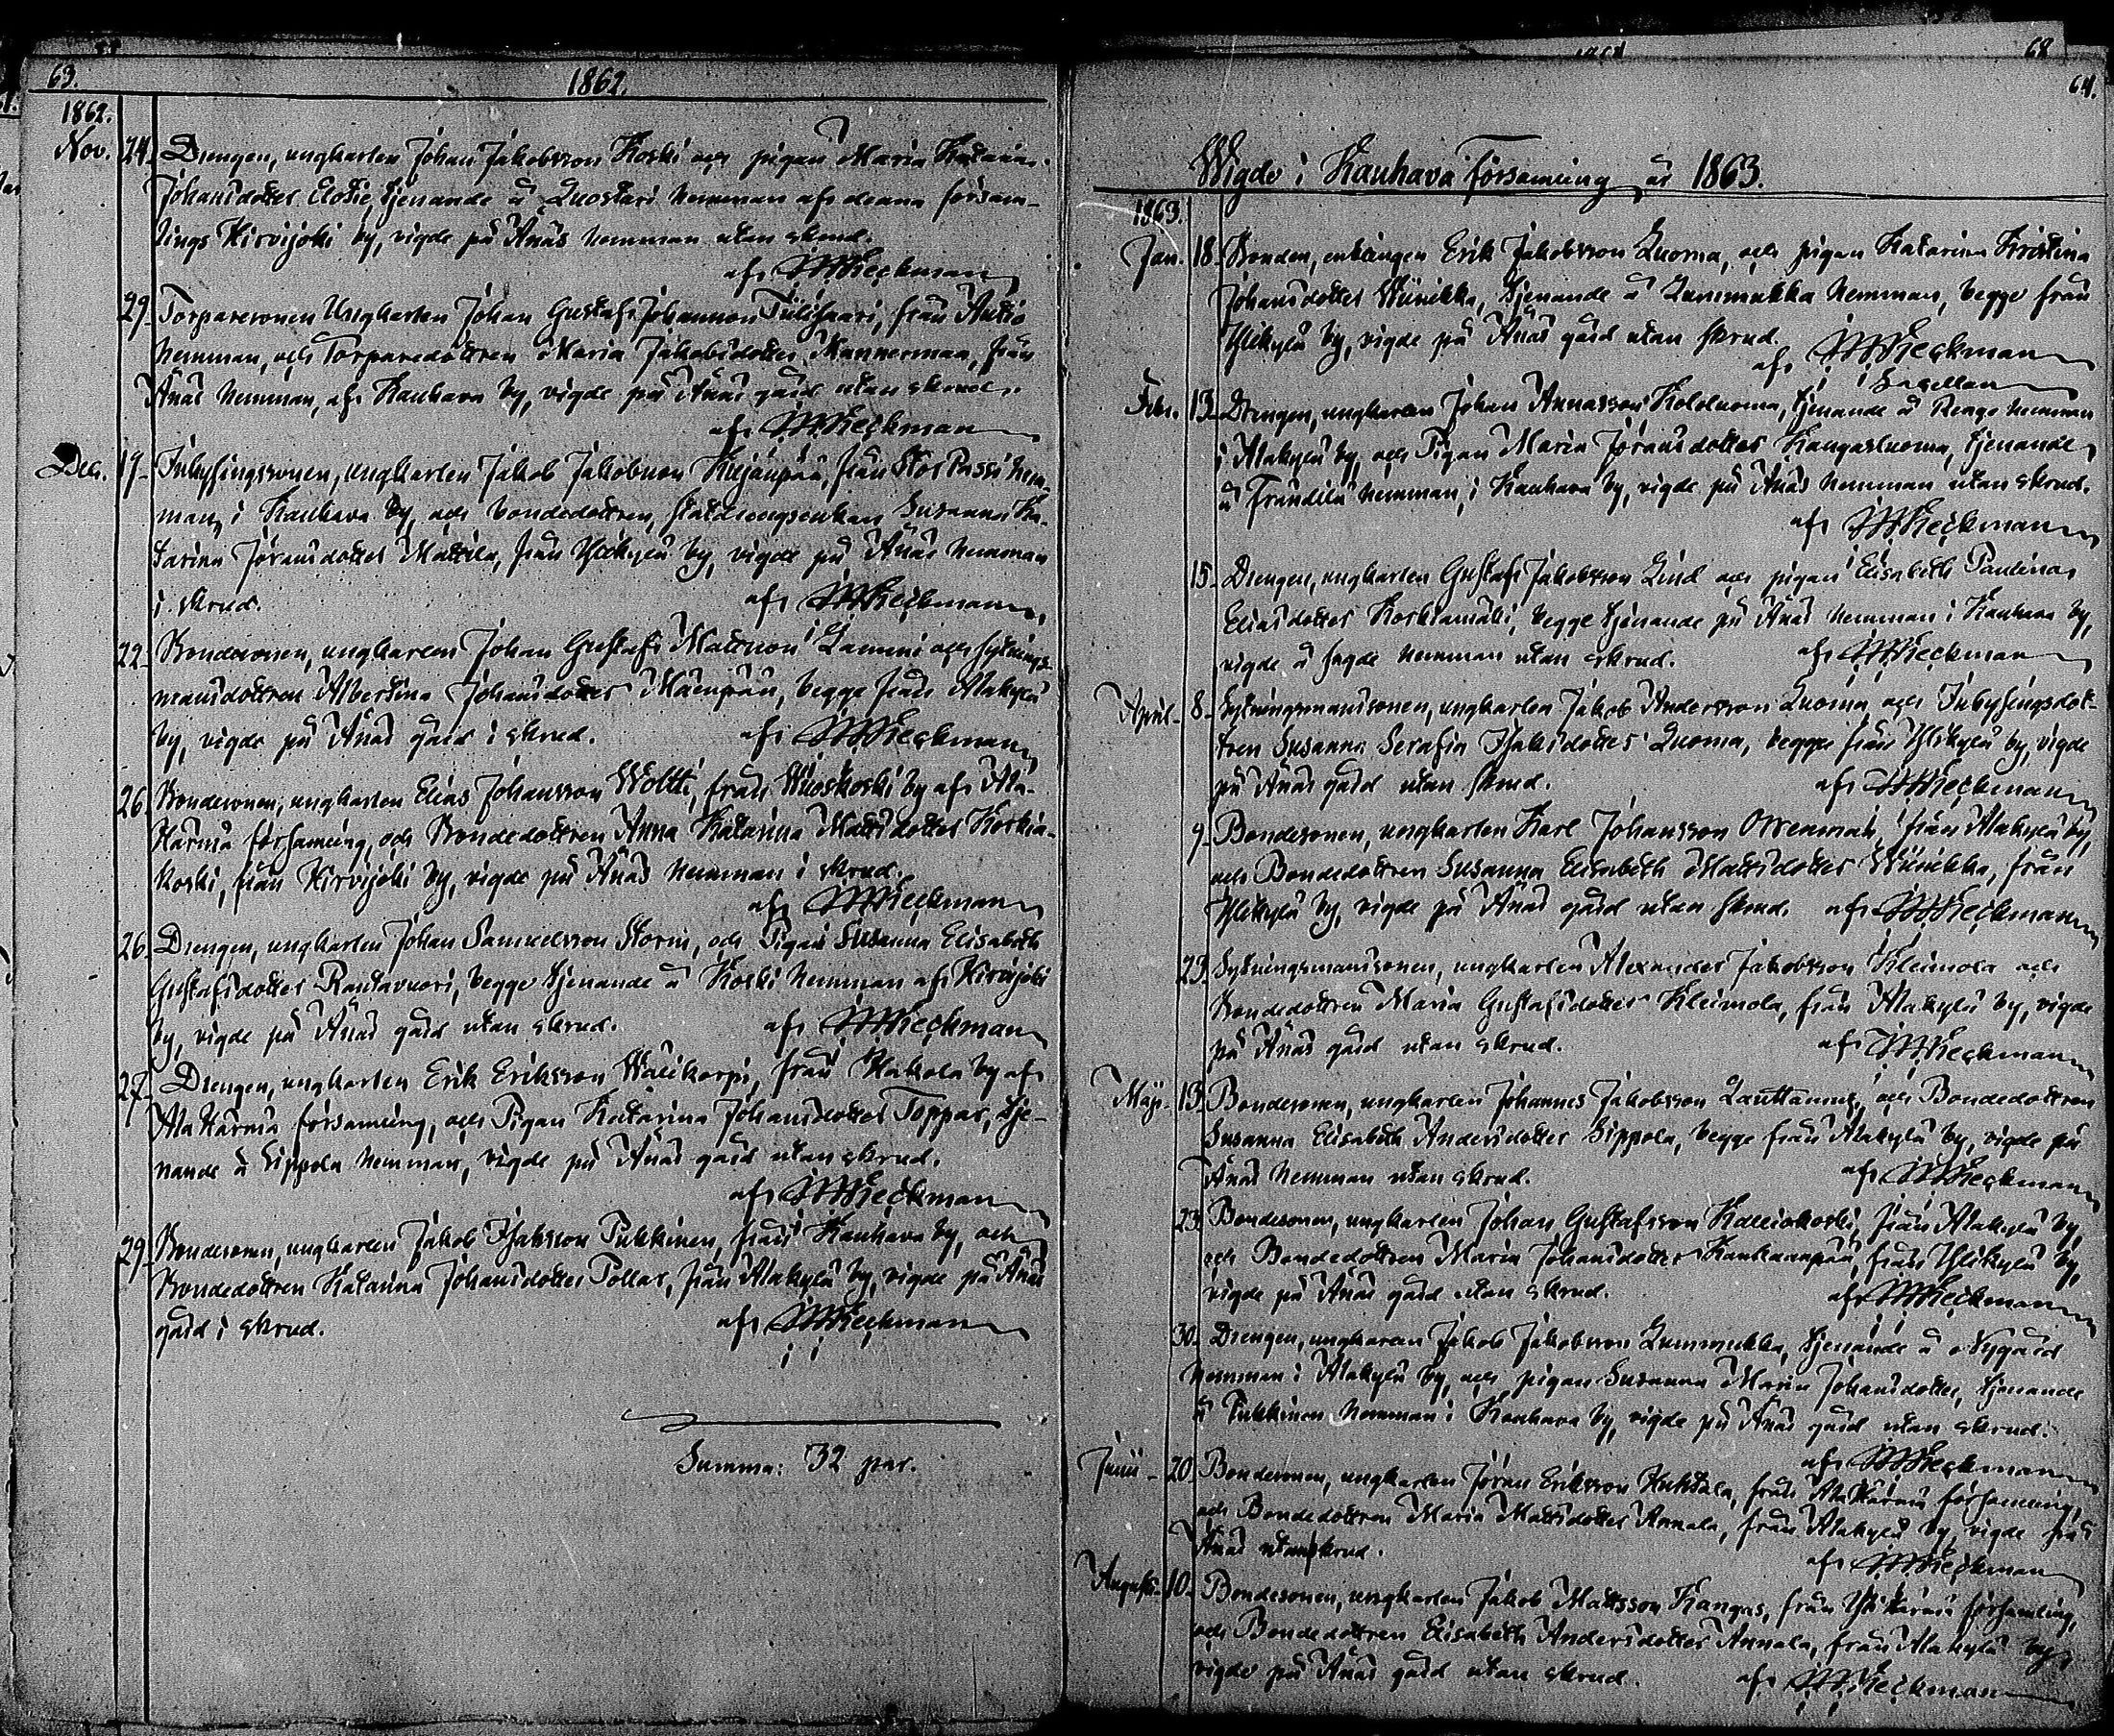 63.
1862.
1862.
Nov. 24. Drengen, ungkarlen Johan Jakobsson Koski och pigan Maria Katarina
Johansdotter Elosie, tjenande å Luostari hemman af denna försam-
lings Hirvijoki by, vigde på Änäs hemman utan skrud.
af
29. Torparesonen Ungkarlen Johan Gustaf Johansson Tulisaari, från Antio
hemman, och Torparedottren Maria Jakobsdotter Mannermaa, från
Änäs hemman, af Kauhava by, vigde på Änäs gård utan skrud.
af
Dec. 19. Inhysingssonen, ungkarlen Jakob Jakobsson Kujanpää, från Stor Passi hem-
man, i Kauhava by, och bondedottren, Susanna Ka-
tarina Jöransdotter Mattila, från Ylikylä by, vigde på Änäs hemman
i skrud. af
22. Bondesonen, ungkarlen Johan Gustaf Mattsson Lammi och sytnings-
mansdottren Albertina Johansdotter Mäenpää, begge från Alakylä
by, vigde på Änäs gård i skrud. af
26. Bondesonen, ungkarlen Elias Johansson Woltti, från Wuoskoski by af Ala-
Härmä församling, och Bondedottren Anna Katarina Mattsdotter Koskia-
koski, från Hirvijoki by, vigde på Änäs hemman i skrud.
af
26. Drengen, ungkarlen Johan Samuelsson Storm, och Pigan Susanna Elisabeth
Gustafsdotter Rantavuori, begge tjenande å Koski hemman af Hirvijoki
by, vigde på Änäs gård utan skrud. af
27. Drengen, ungkarlen Erik Eriksson Wälikorpi, från Hakola by af
Ala Härmä församling, och Pigan Katarina Johansdotter Toppar, tje-
nande å Sippola hemman, vigde på Änäs gård utan skrud.
af
29. Bondesonen, ungkarlen Jakob Isaksson Pukkinen, från Kauhava by, och
Bondedottren Katarina Johansdotter Pollar, från Alakylä by, vigde på Änäs
gård i skrud. af
Summa: 32 par.
68
64.
Wigde i Kauhava församling år 1863.
1863.
Jan. 18. Bonden, enklingen Erik Jakobsson Luoma, och pigan Katarina Kristina
Johansdotter Wiinikka, tjenande å Lummukka hemman, begge från
Ylikylä by, vigde på Änäs gård utan skrud.
af
Febr. 13. Drengen, ungkarlen Johan Annasson Kololuoma, tjenande å Rengo hemman
i Alakylä by, och Pigan Maria Jöransdotter Kangasluoma, tjenande
å Frändilä hemman, i Kauhava by, vigde på Änäs hemman utan skrud.
af
15. Drengen, ungkarlen Gustaf Jakobsson Lind och pigan Elisabeth Paulina
Eliasdotter Koskiamäki, begge tjenande på Änäs hemman i Kauhava by,
vigde å sagde hemman utan skrud. af
April 8. Sytningsmansonen, ungkarlen Jakob Andersson Luoma, och Inhysingsdot-
tren Susanna Serafia Isaksdotter Luoma, begge från Ylikylä by, vigde
på Änäs gård utan skrud. af
9. Bondesonen, ungkarlen Karl Johansson Orrenmaa, från Alakylä by,
och Bondedottren Susanna Elisabeth Mattsdotter Wiinikka, från
Ylikylä by, vigde på Änäs gård utan skrud. af
23. Sytningsmansonen, ungkarlen Alexander Jakobsson Kleimola och
Bondedottren Maria Gustafsdotter Kleimola, från Alakylä by, vigde
på Änäs gård utan skrud. af
Maji 13. Bondesonen, ungkarlen Johannes Jakobsson Lauttamus, och Bondedottren
Susanna Elisabeth Andersdotter Sippola, begge från Alakylä by, vigde på
Änäs hemman utan skrud. af
23. Bondesonen, ungkarlen Johan Gustafsson Kalliokoski, från Alakylä by,
och Bondedottren Maria Johansdotter Kauhanpää, från Ylikylä by,
vigde på Änäs gård utan skrud. af
30. Drengen, ungkarlen Jakob Jakobsson Lummukka, tjenande å Nygård
hemman i Alakylä by, och pigan Susanna Maria Johansdotter, tjenande
å Pukkinen hemman i Kauhava by, vigde på Änäs gård utan skrud.
af
Junii 20. Bondesonen, ungkarlen Jöran Eriksson Huhtala, från Ala Härmä församling,
och Bondedottren Maria Mattsdotter Annala, från Alakylä by, vigde på
Änäs utan skrud. af
Augusti 10. Bondesonen, ungkarlen Jakob Mattsson Kangas, från Yli Härmä församling,
och Bondedottren Elisabeth Andersdotter Annala, från Alakylä by,
vigde på Änäs gård utan skrud. af